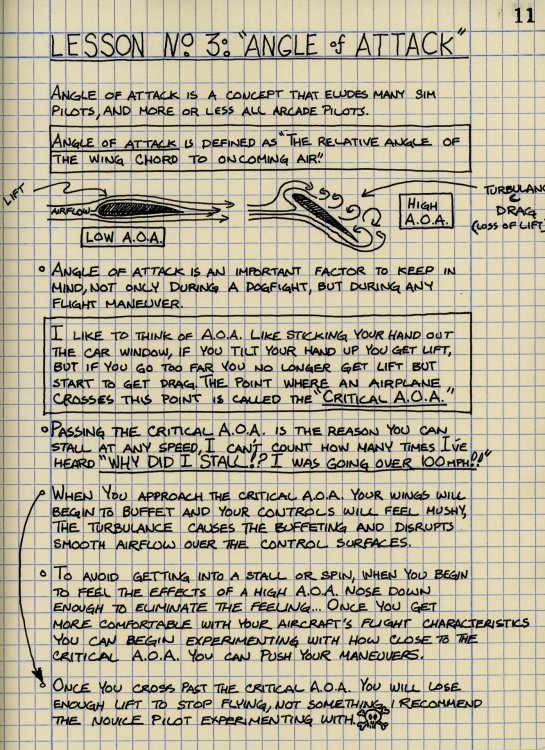 11
LESSON No 3: "ANGLE of ATTACK"
ANGLE OF ATTACK IS A CONCEPT THAT ELUDES MANY SIM
PILOTS, AND MORE OR LESS ALL ARCADE PILOTS.
ANGLE OF ATTACK IS DEFINED AS "THE RELATIVE ANGLE OF
THE WING CHORD TO ONCOMING AIR."
LIFT
AIRFLOW
LOW A.O.A.
HIGH
A.O.A.
TURBULANC
&
DRAG
(LOSS OF LIFT)
• ANGLE OF ATTACK IS AN IMPORTANT FACTOR TO KEEP IN
MIND, NOT ONLY DURING A DOGFIGHT, BUT DURING ANY
FLIGHT MANEUVER.
I LIKE TO THINK OF A.O.A. LIKE STICKING YOUR HAND OUT
THE CAR WINDOW, IF YOU TILT YOUR HAND UP YOU GET LIFT,
BUT IF YOU GO TOO FAR YOU NO LONGER GET LIFT BUT
START TO GET DRAG. THE POINT WHERE AN AIRPLANE
CROSSES THIS POINT IS CALLED THE "CRITICAL A.O.A."
• PASSING THE CRITICAL A.O.A. IS THE REASON YOU CAN
STALL AT ANY SPEED, I CAN'T COUNT HOW MANY TIMES I'VE
HEARD "WHY DID I STALL!? I WAS GOING OVER 100MPH!!"
• WHEN YOU APPROACH THE CRITICAL A.O.A. YOUR WINGS WILL
BEGIN TO BUFFET AND YOUR CONTROLS WILL FEEL MUSHY,
THE TURBULANCE CAUSES THE BUFFETING AND DISRUPTS
SMOOTH AIRFLOW OVER THE CONTROL SURFACES.
• TO AVOID GETTING INTO A STALL OR SPIN, WHEN YOU BEGIN
TO FEEL THE EFFECTS OF A HIGH A.O.A. NOSE DOWN
ENOUGH TO ELIMINATE THE FEELING... ONCE YOU GET
MORE COMFORTABLE WITH YOUR AIRCRAFT'S FLIGHT CHARACTERISTICS
YOU CAN BEGIN EXPERIMENTING WITH HOW CLOSE TO THE
CRITICAL A.O.A. YOU CAN PUSH YOUR MANEUVERS.
• ONCE YOU CROSS PAST THE CRITICAL A.O.A. YOU WILL LOSE
ENOUGH LIFT TO STOP FLYING, NOT SOMETHING I RECOMMEND
THE NOVICE PILOT EXPERIMENTING WITH.